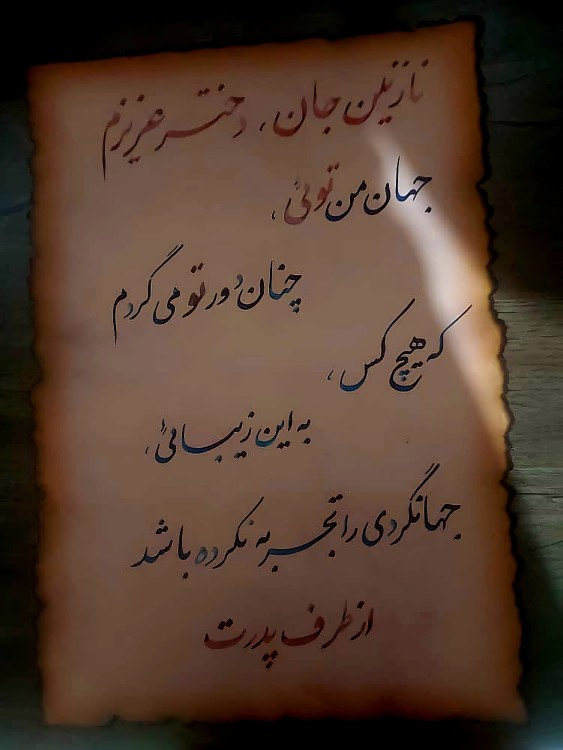 نازنین جان، دختر عزیزم
جهان من توئی،
چنان دور تو می گردم
که هیچ کس،
به این زیبائی،
جهانگردی را تجربه نکرده باشد
از طرف پدرت